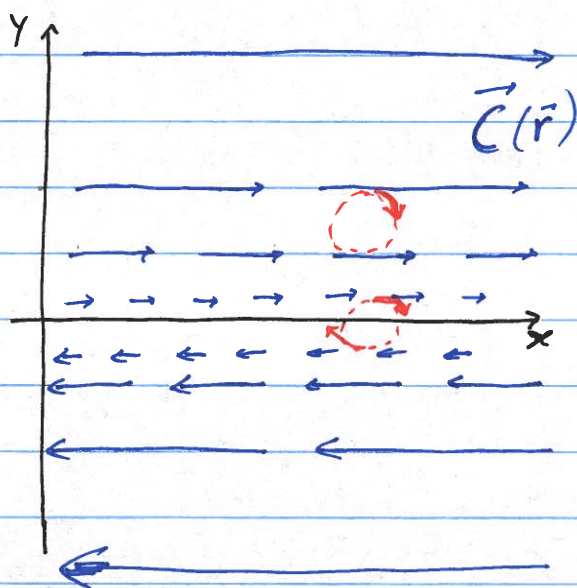 y
C(r)
x